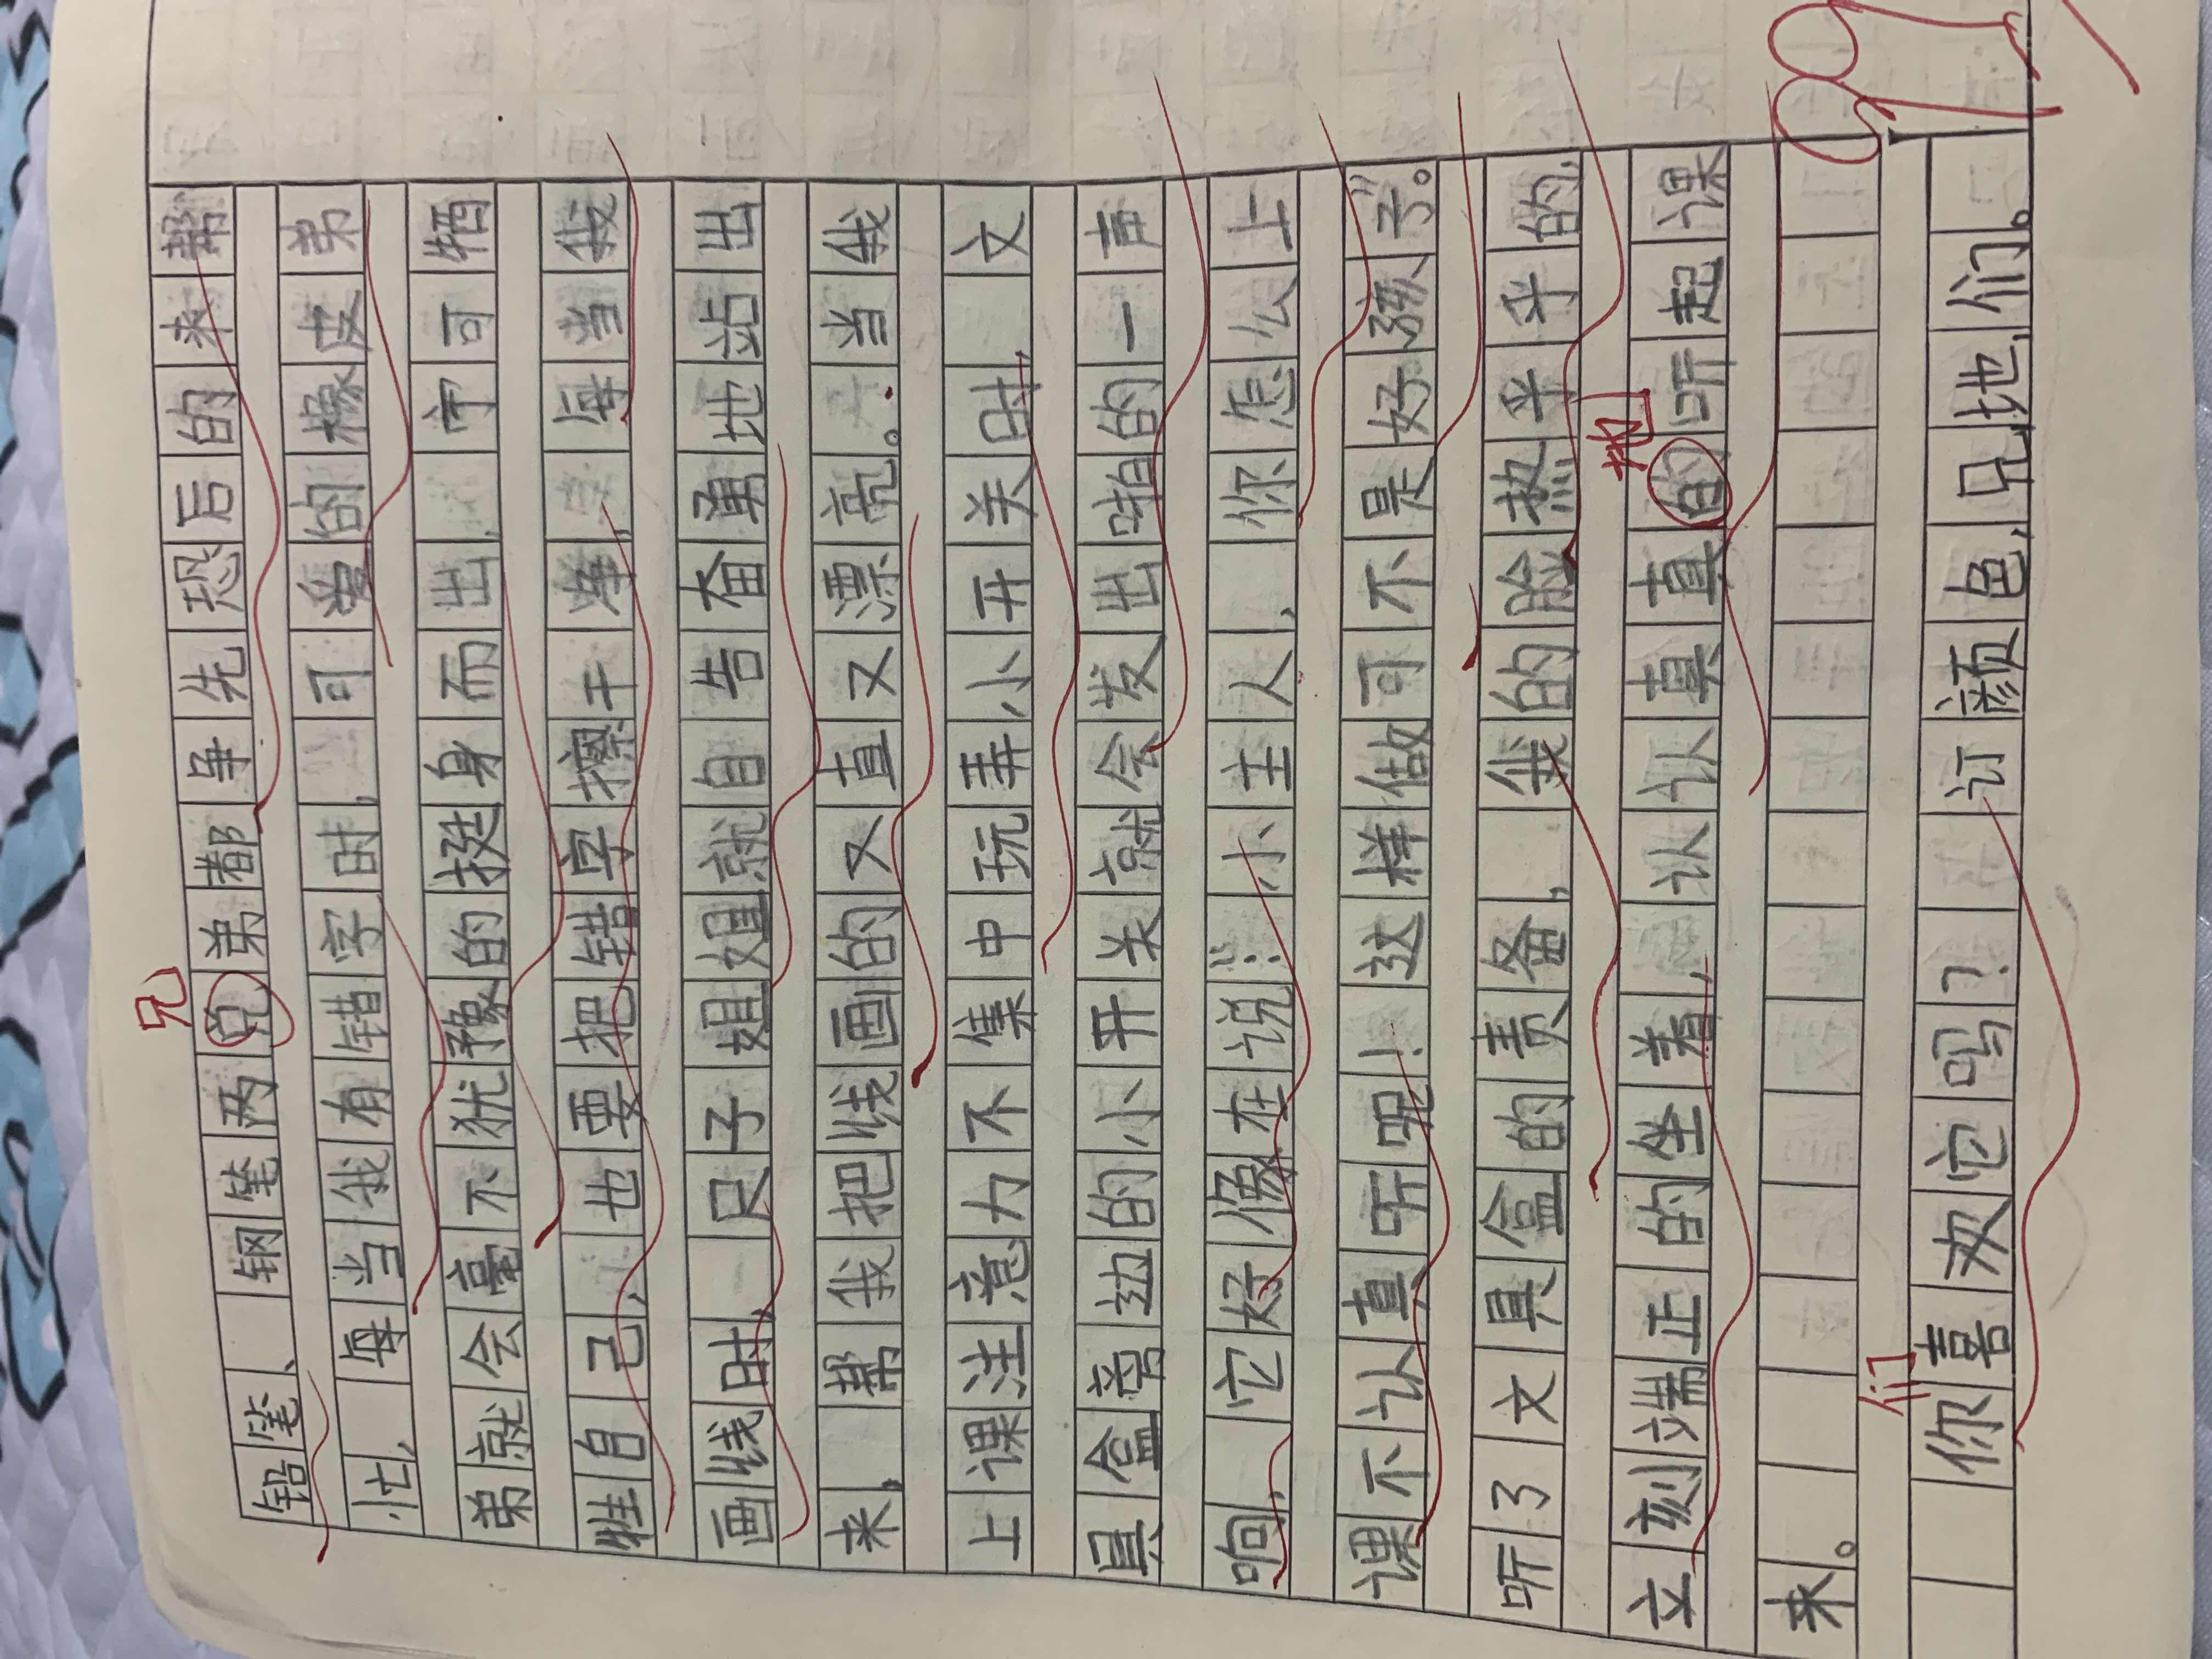 铅笔、钢笔两兑弟都争先恐后的来帮
兄
忙，每当我有错字时，可爱的橡皮弟
弟就会毫不犹豫的挺身而出，宁可牺
牲自己，也要把错字擦干净，每当我
画线时，尺子姐姐就自告奋勇地站出
来，帮我把线画的又直又漂亮。当我
上课注意力不集中玩弄小开关时，文
具盒旁边的小开关就会发出啪的一声
响，它好像在说：“小主人，你怎么上
课不认真听呢！这样做可不是好孩子”。
听了文具盒的责备，我的脸热乎乎的，
立刻端正的坐着，认认真真的听起课
来。
们
你喜欢它吗？订颜色，兄地，们。